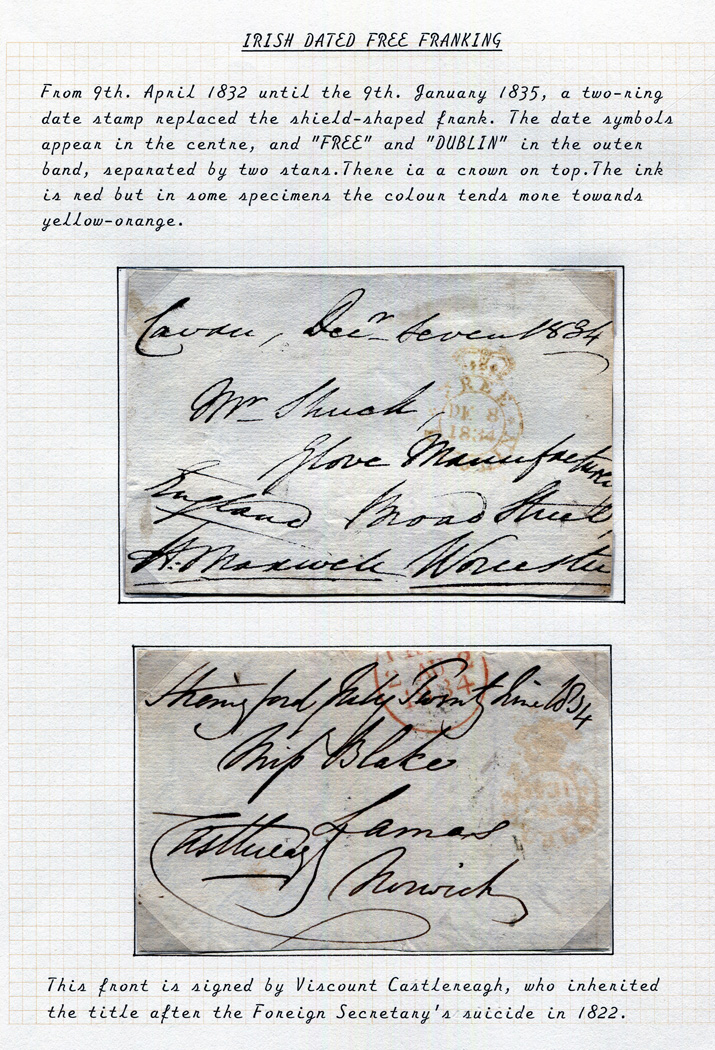 IRISH DATED FREE FRANKING
From 9th. April 1832 until the 9th. January 1835, a two-ring
date stamp replaced the shield-shaped frank. The date symbols
appear in the centre, and "FREE" and "DUBLIN" in the outer
band, separated by two stars.There ia a crown on top.The ink
is red but in some specimens the colour tends more towards
yellow-orange.
Cavan, Decr. Seven 1834
FREE
DE 8
1834
Mr Shuck,
Glove Manufacturer
England Broad Street,
H. Maxwell Worcester
2 AU 2
1834
Strangford July Twenty Nine 1834
Miss Blake
Castlereagh
Norwich
This front is signed by Viscount Castlereagh, who inherited
the title after the Foreign Secretary's suicide in 1822.